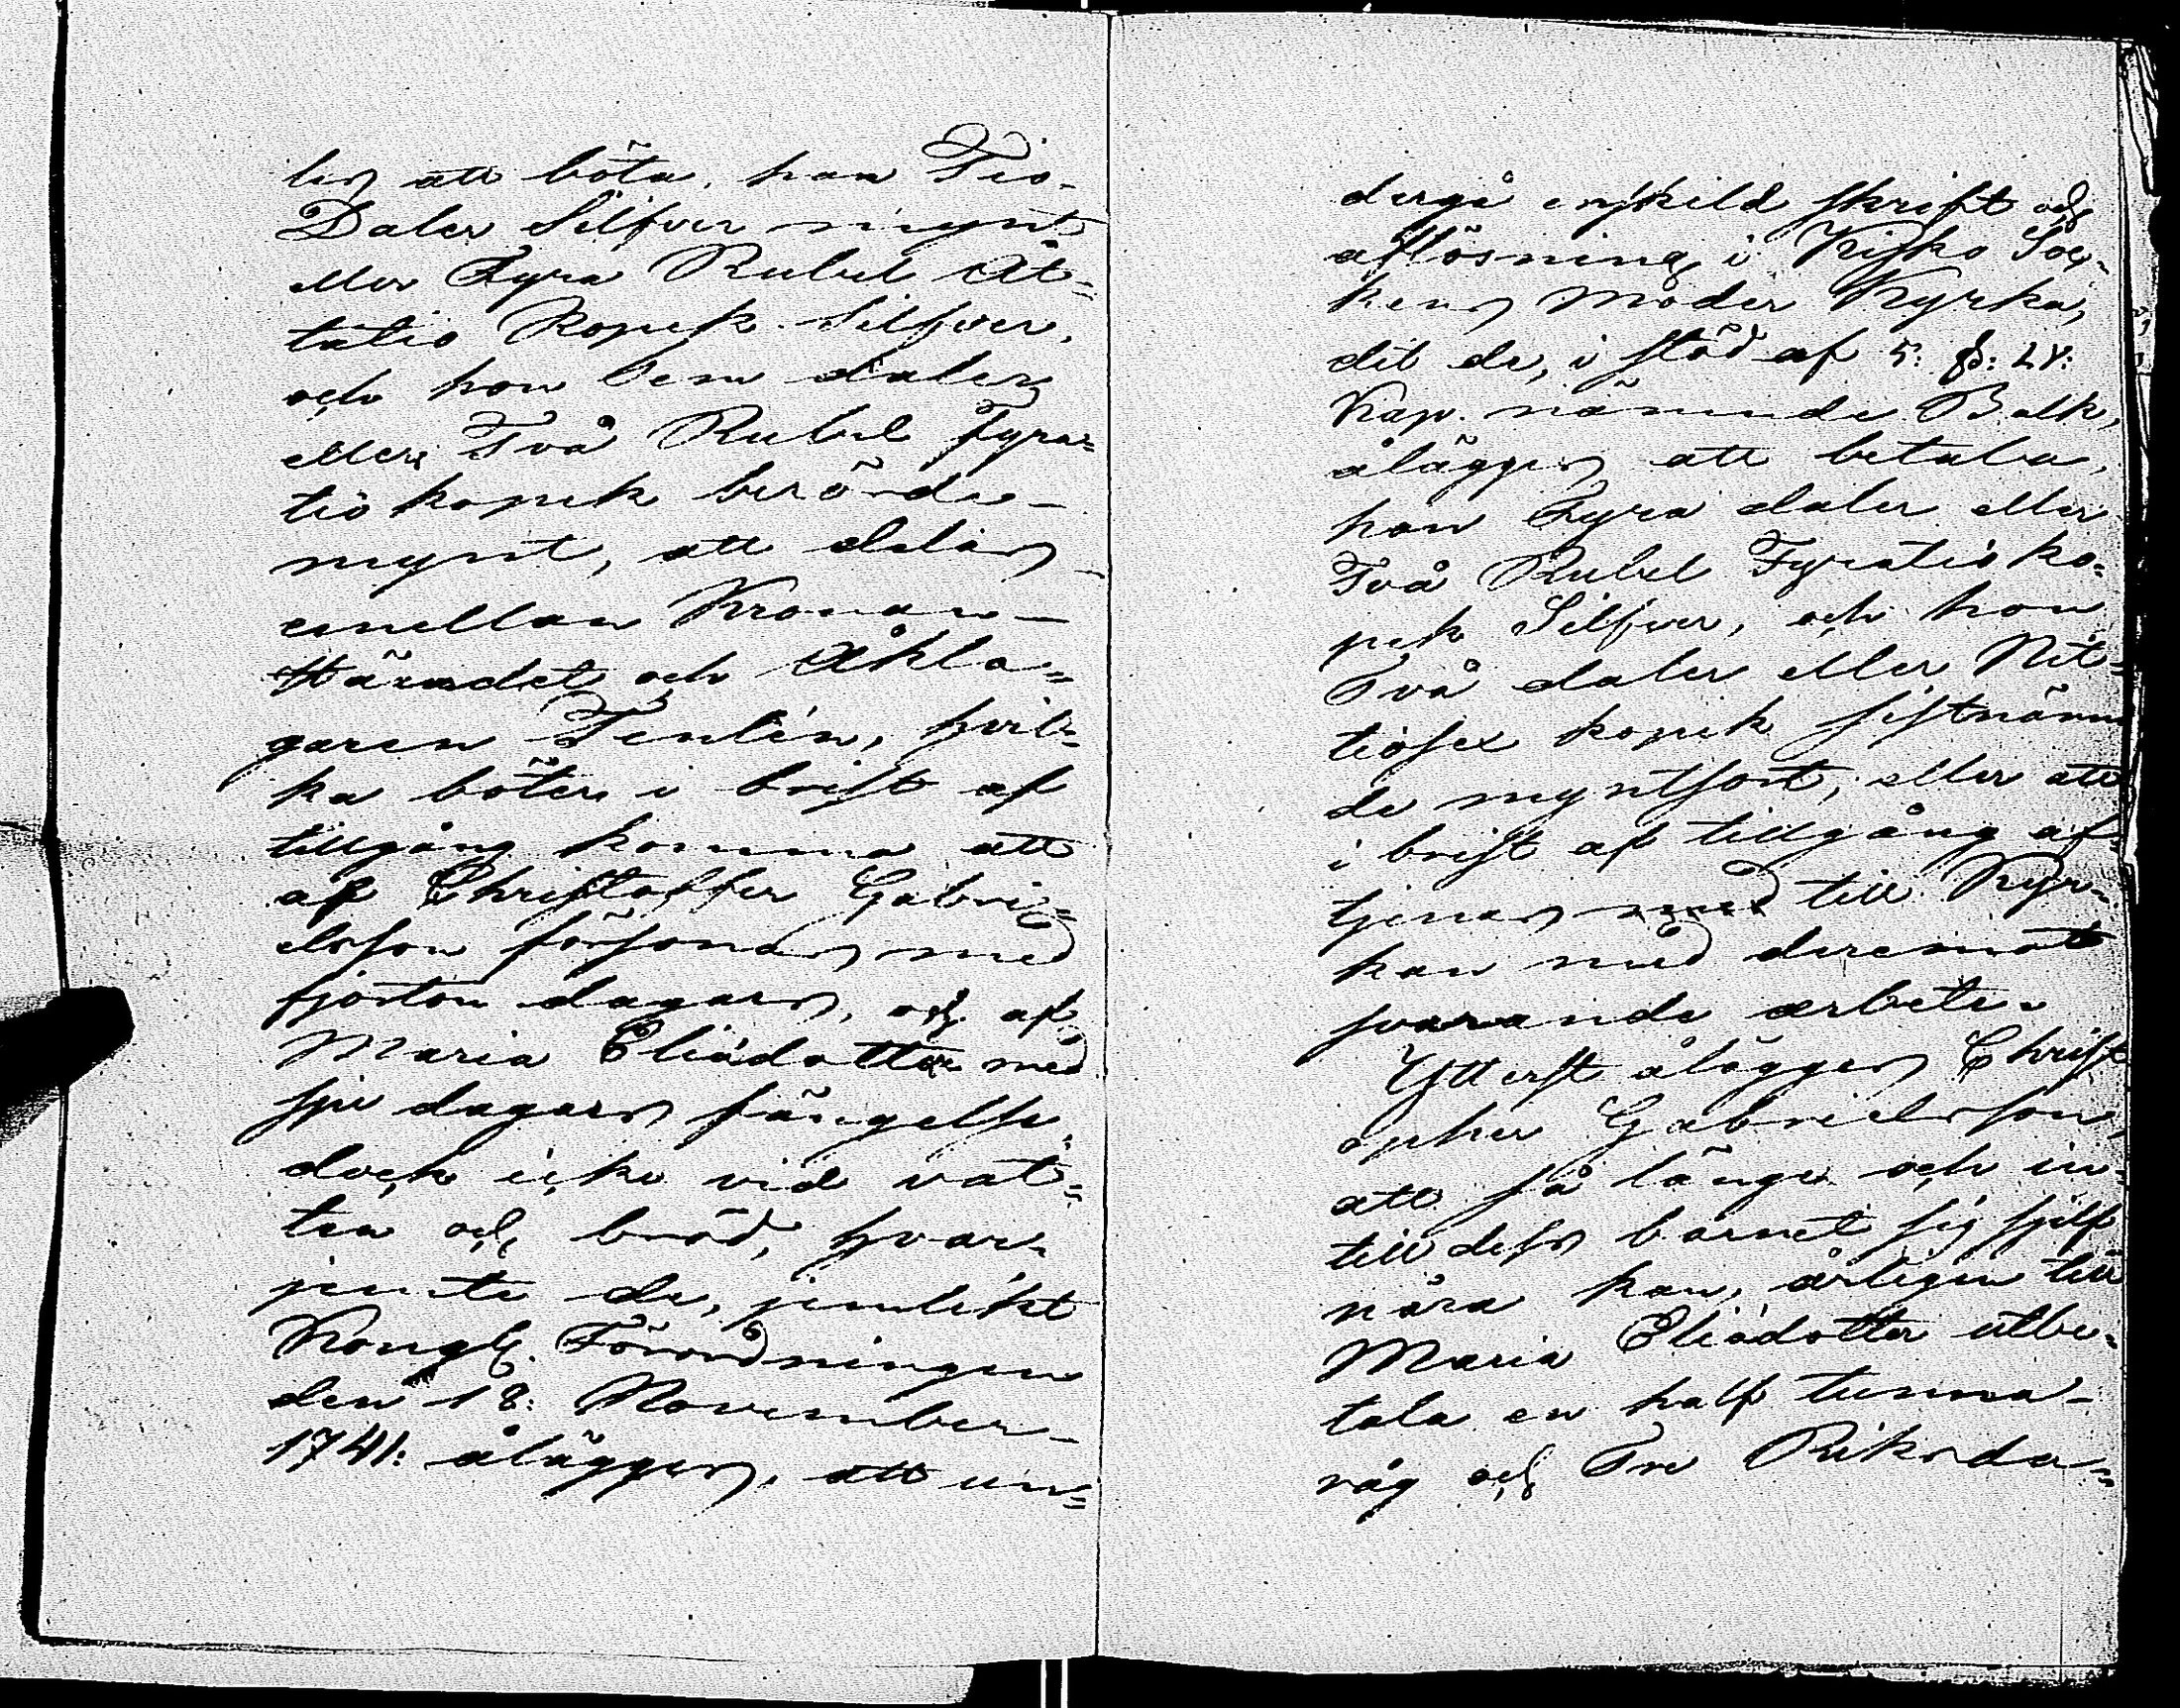 les att böta, han Tio
Daler Silfver mynt
eller Fyra Rubel Åt-
tatio Kopek Silfver,
och hon Fem daler
eller Två Rubel fyra-
tio kopek berörde
mynt, att delas
emellan Kronan
Häradet och Åkla-
garen Tenlén, hvil-
ka böter i brist af
tillgång komma att
af Christoffer Gabri-
elsson försonas med
fjorton dagars, och af
Maria Eliædotter med
sju dagars fängelse,
dock icke vid vat-
ten och bröd, hvar-
jemte de, jemlikt
Kongl. Förordningen
den 18: November
1741: åläggas, att un-
dergå enskild skrift och
aflösning i Kisko Soc-
kens Moder Kyrka,
dit de, i stöd af 5: §: 24:
Kap. nämnde Balk,
åläggas att betala,
han Fyra daler eller
Två Rubel Fyratio ko-
pek Silfver, och hon
Två daler eller Nit-
tiosex kopek sistnämn
de myntsort, eller att
i brist af tillgång af-
tjenas med till Kyr-
kan med deremot
svarande arbete.
Ytterst ålägges Christ
opher Gabrielsson,
att så länge och in-
till dess barnet sig sjelf
nära kan, årligen till
Maria Eliædotter utbe-
tala en half tunna
råg och Tre Riksda-